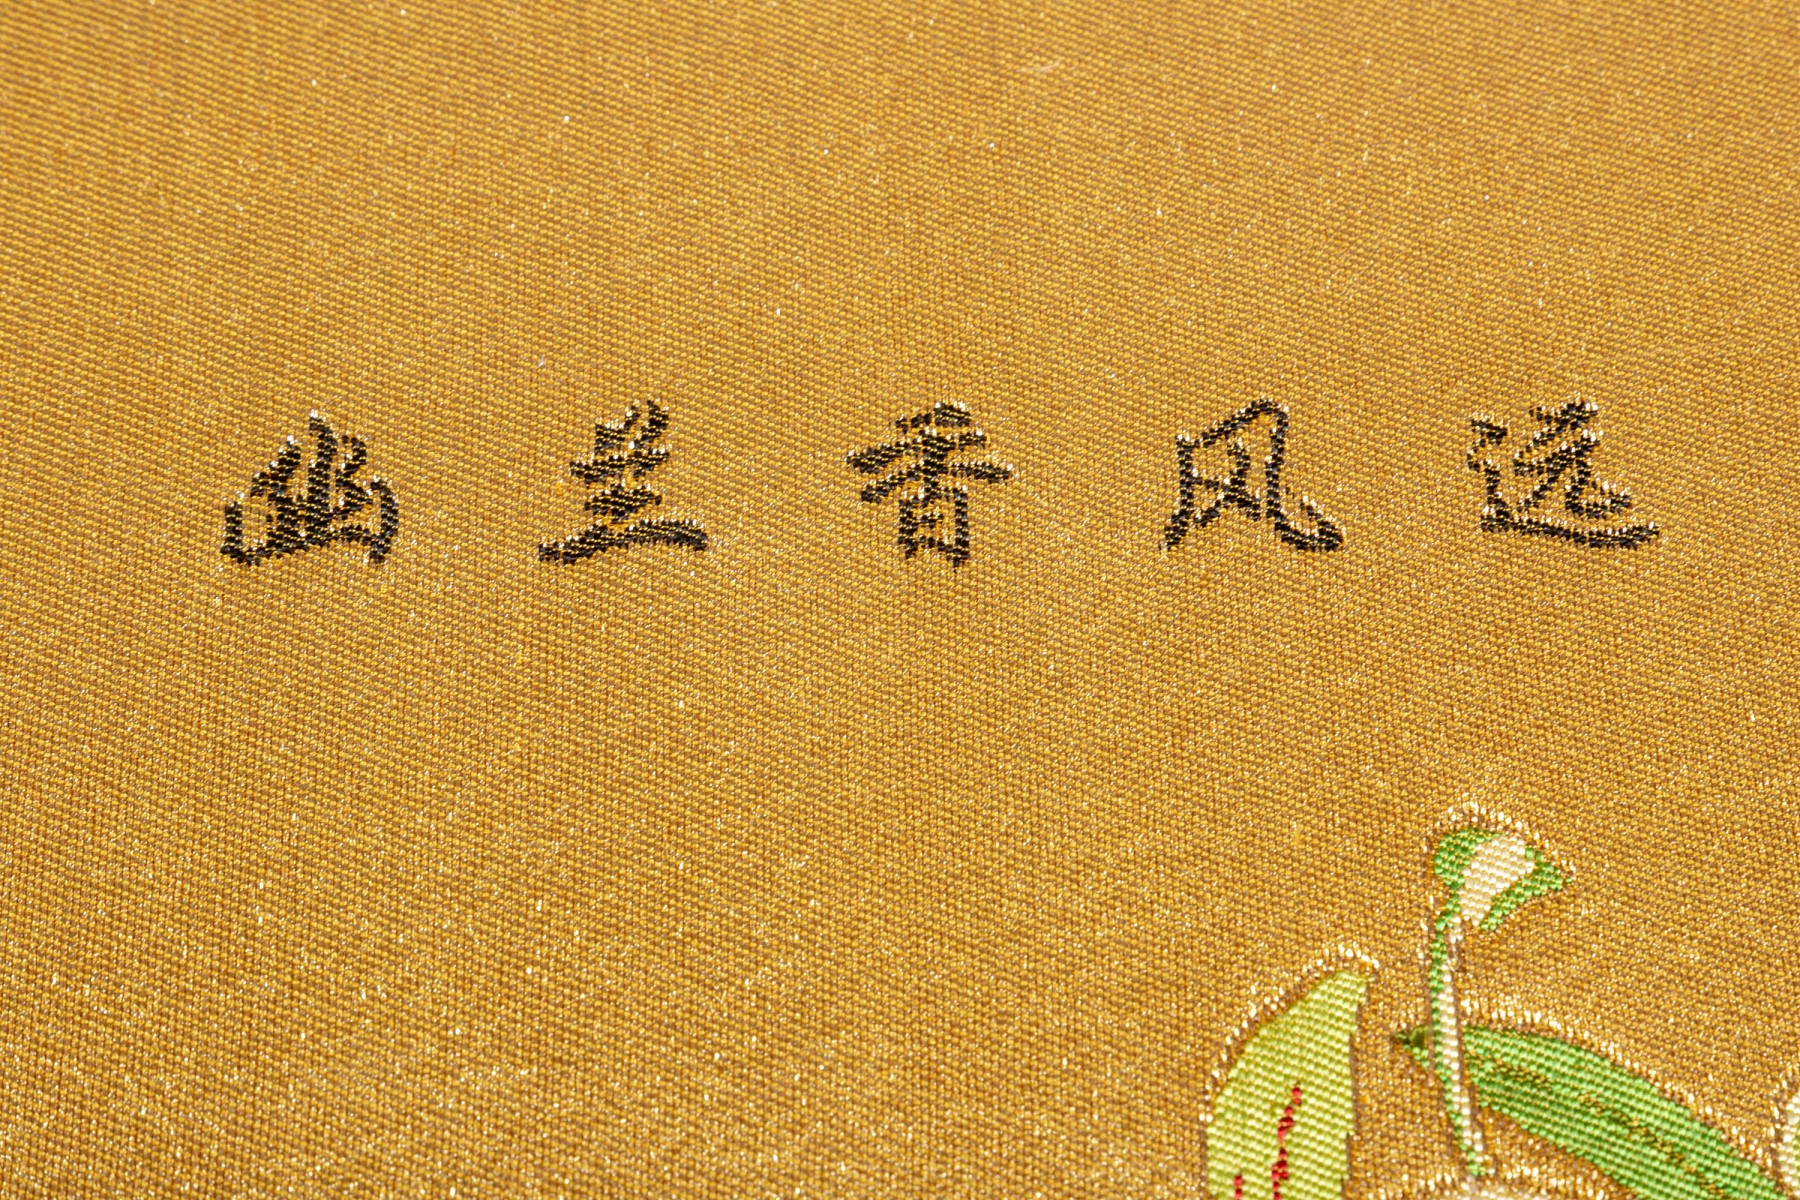 幽兰香风远